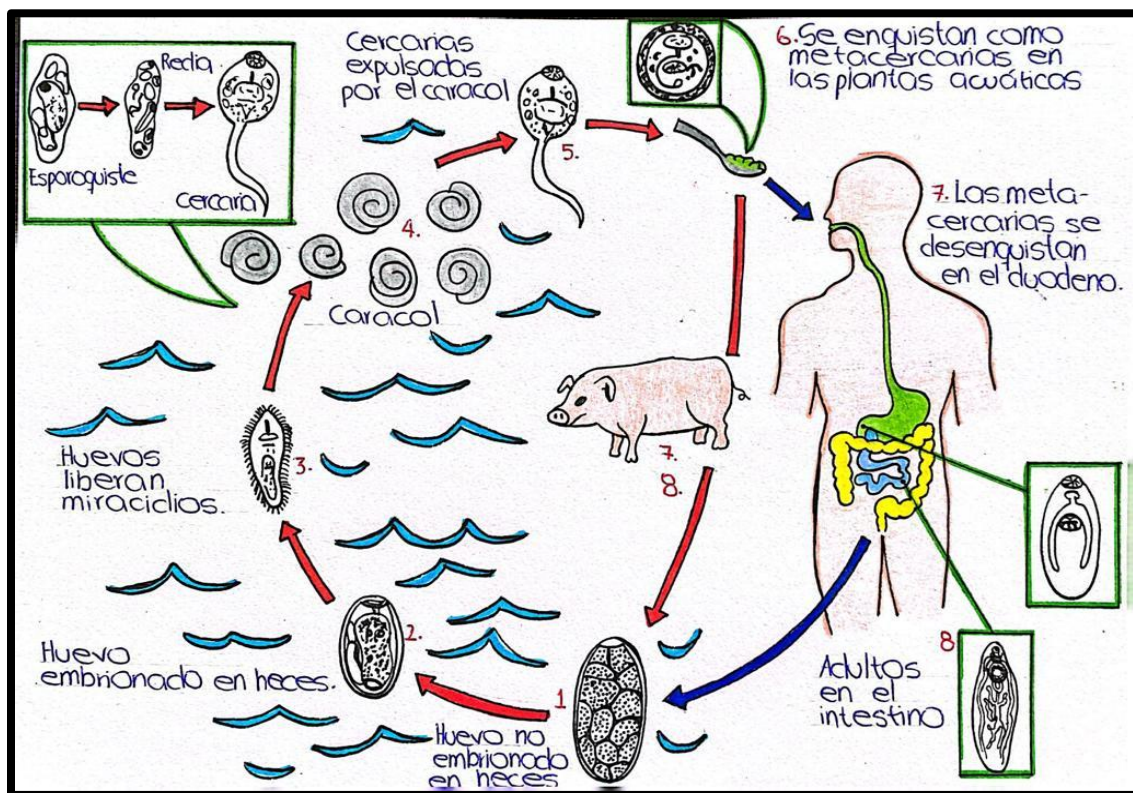 Redia
Esporoquiste
Cercaria
Cercarias
expulsadas
por el caracol
5.
6. Se enquistan como
metacercarias en
las plantas acuáticas
7. Las meta-
cercarias se
desenquistan
en el duodeno.
4.
Caracol
3.
Huevos
liberan
miracidios.
7.
8.
2.
Huevo
embrionado en heces.
1
Huevo no
embrionado
en heces
Adultos
en el
intestino
8